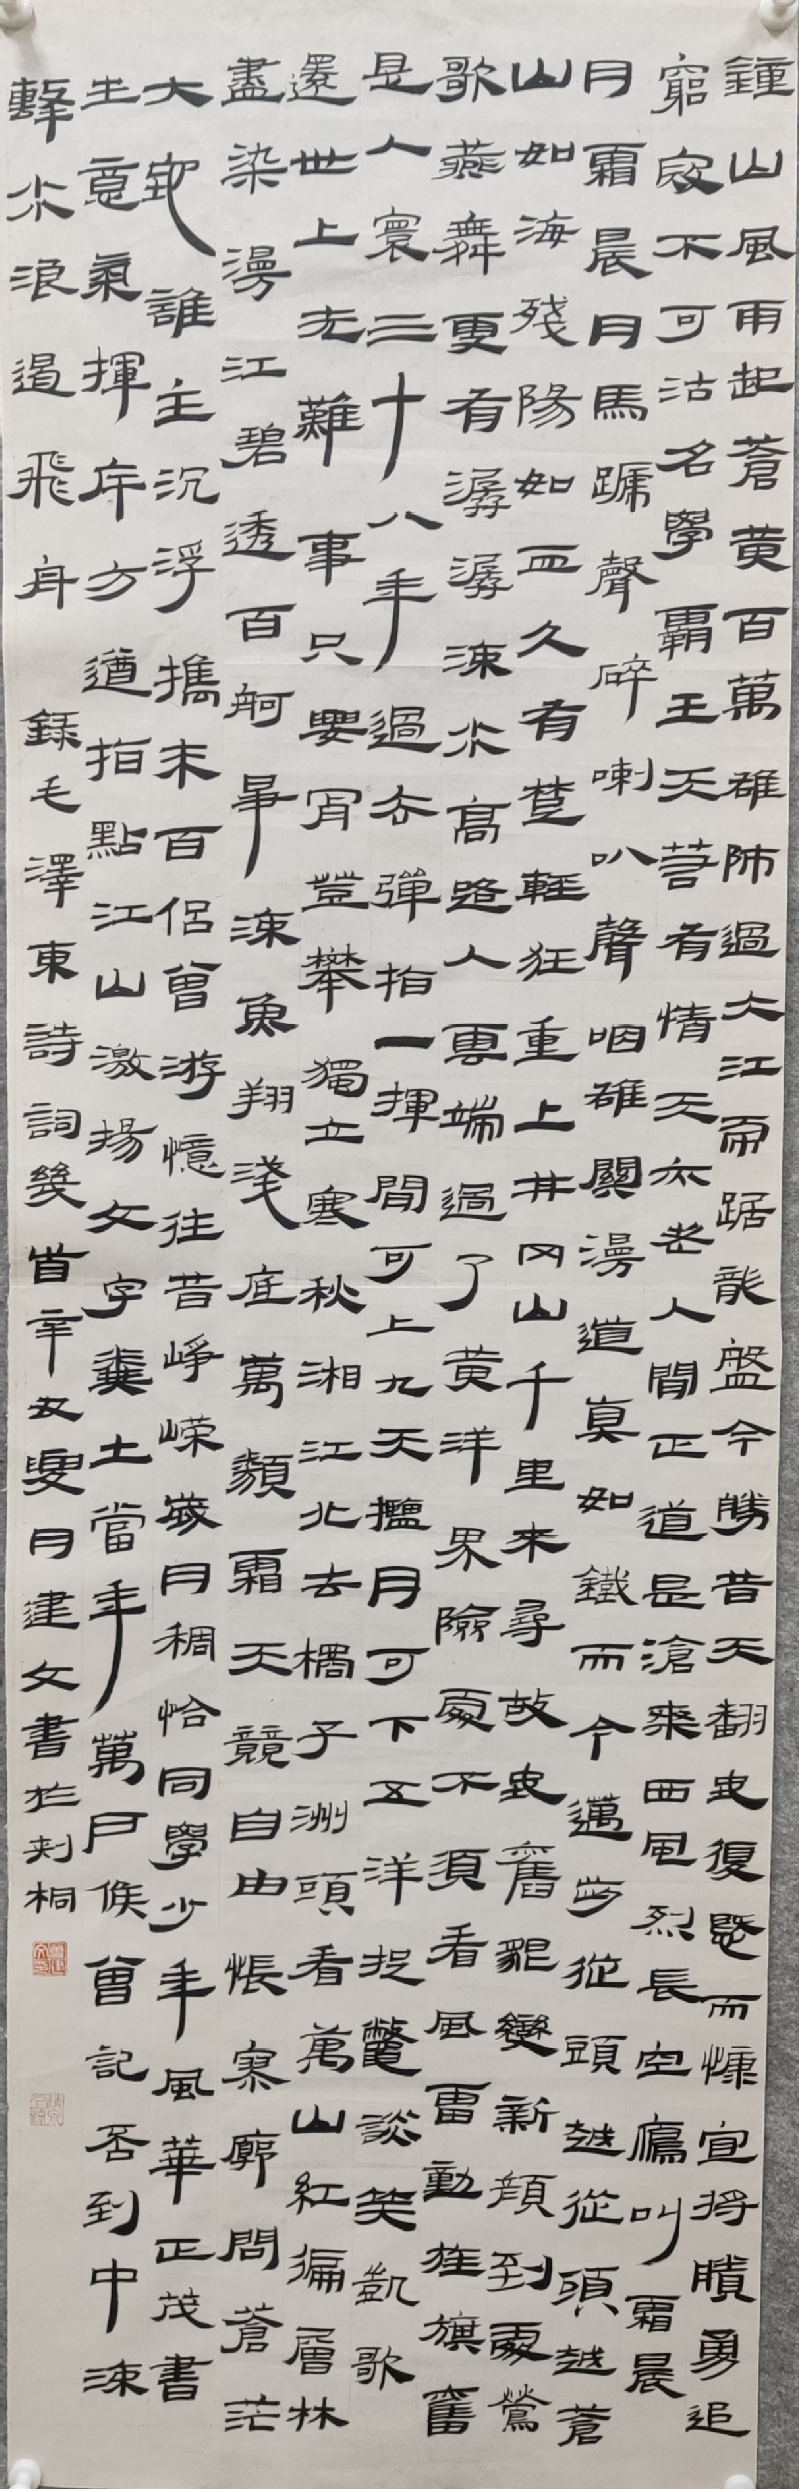 鍾山風雨起蒼黃百萬雄師過大江虎踞龍盤今勝昔天翻地復慨而慷宜將賸勇追
窮寇不可沽名學霸王天若有情天亦老人間正道是滄桒西風烈長空鴈叫霜晨
月霜晨月馬蹏聲碎喇叭聲咽雄關漫道真如鐵而今邁步從頭越從頭越蒼
山如海殘陽如血久有楚輕狂重上井岡山千里來尋故地舊貌變新顏到處鶯
歌燕舞更有潺潺流水高路入雲端過了黃洋界險處不須看風雷動旌旗奮
是人寰三十八年過去彈指一揮間可上九天攬月可下五洋捉鱉談笑凱歌
還世上無難事只要肯登攀獨立寒秋湘江北去橘子洲頭看萬山紅徧層林
盡染漫江碧透百舸爭流魚翔淺底萬類霜天競自由悵寥廓問蒼茫
大地誰主沉浮攜來百侶曾游憶往昔崢嶸歲月稠恰同學少年風華正茂書
生意氣揮斥方遒指點江山激揚文字糞土當年萬戶侯曾記否到中流
擊水浪遏飛舟 錄毛澤東詩詞幾首辛丑夏月建文書於刺桐